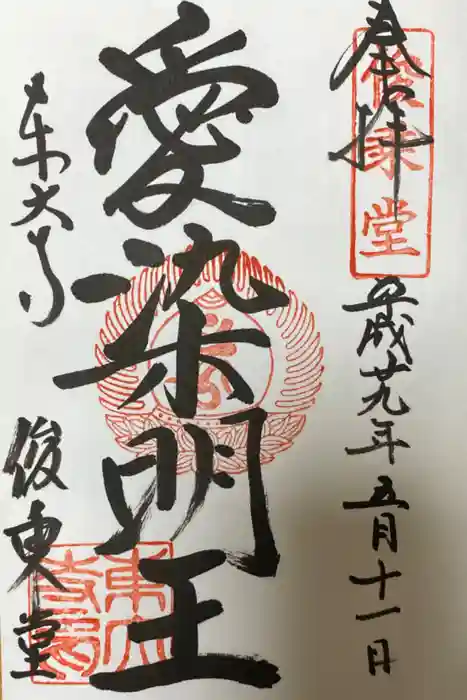 奉拝
俊乗堂
平成廿九年五月十一日
愛染明王
東大寺
俊乗堂